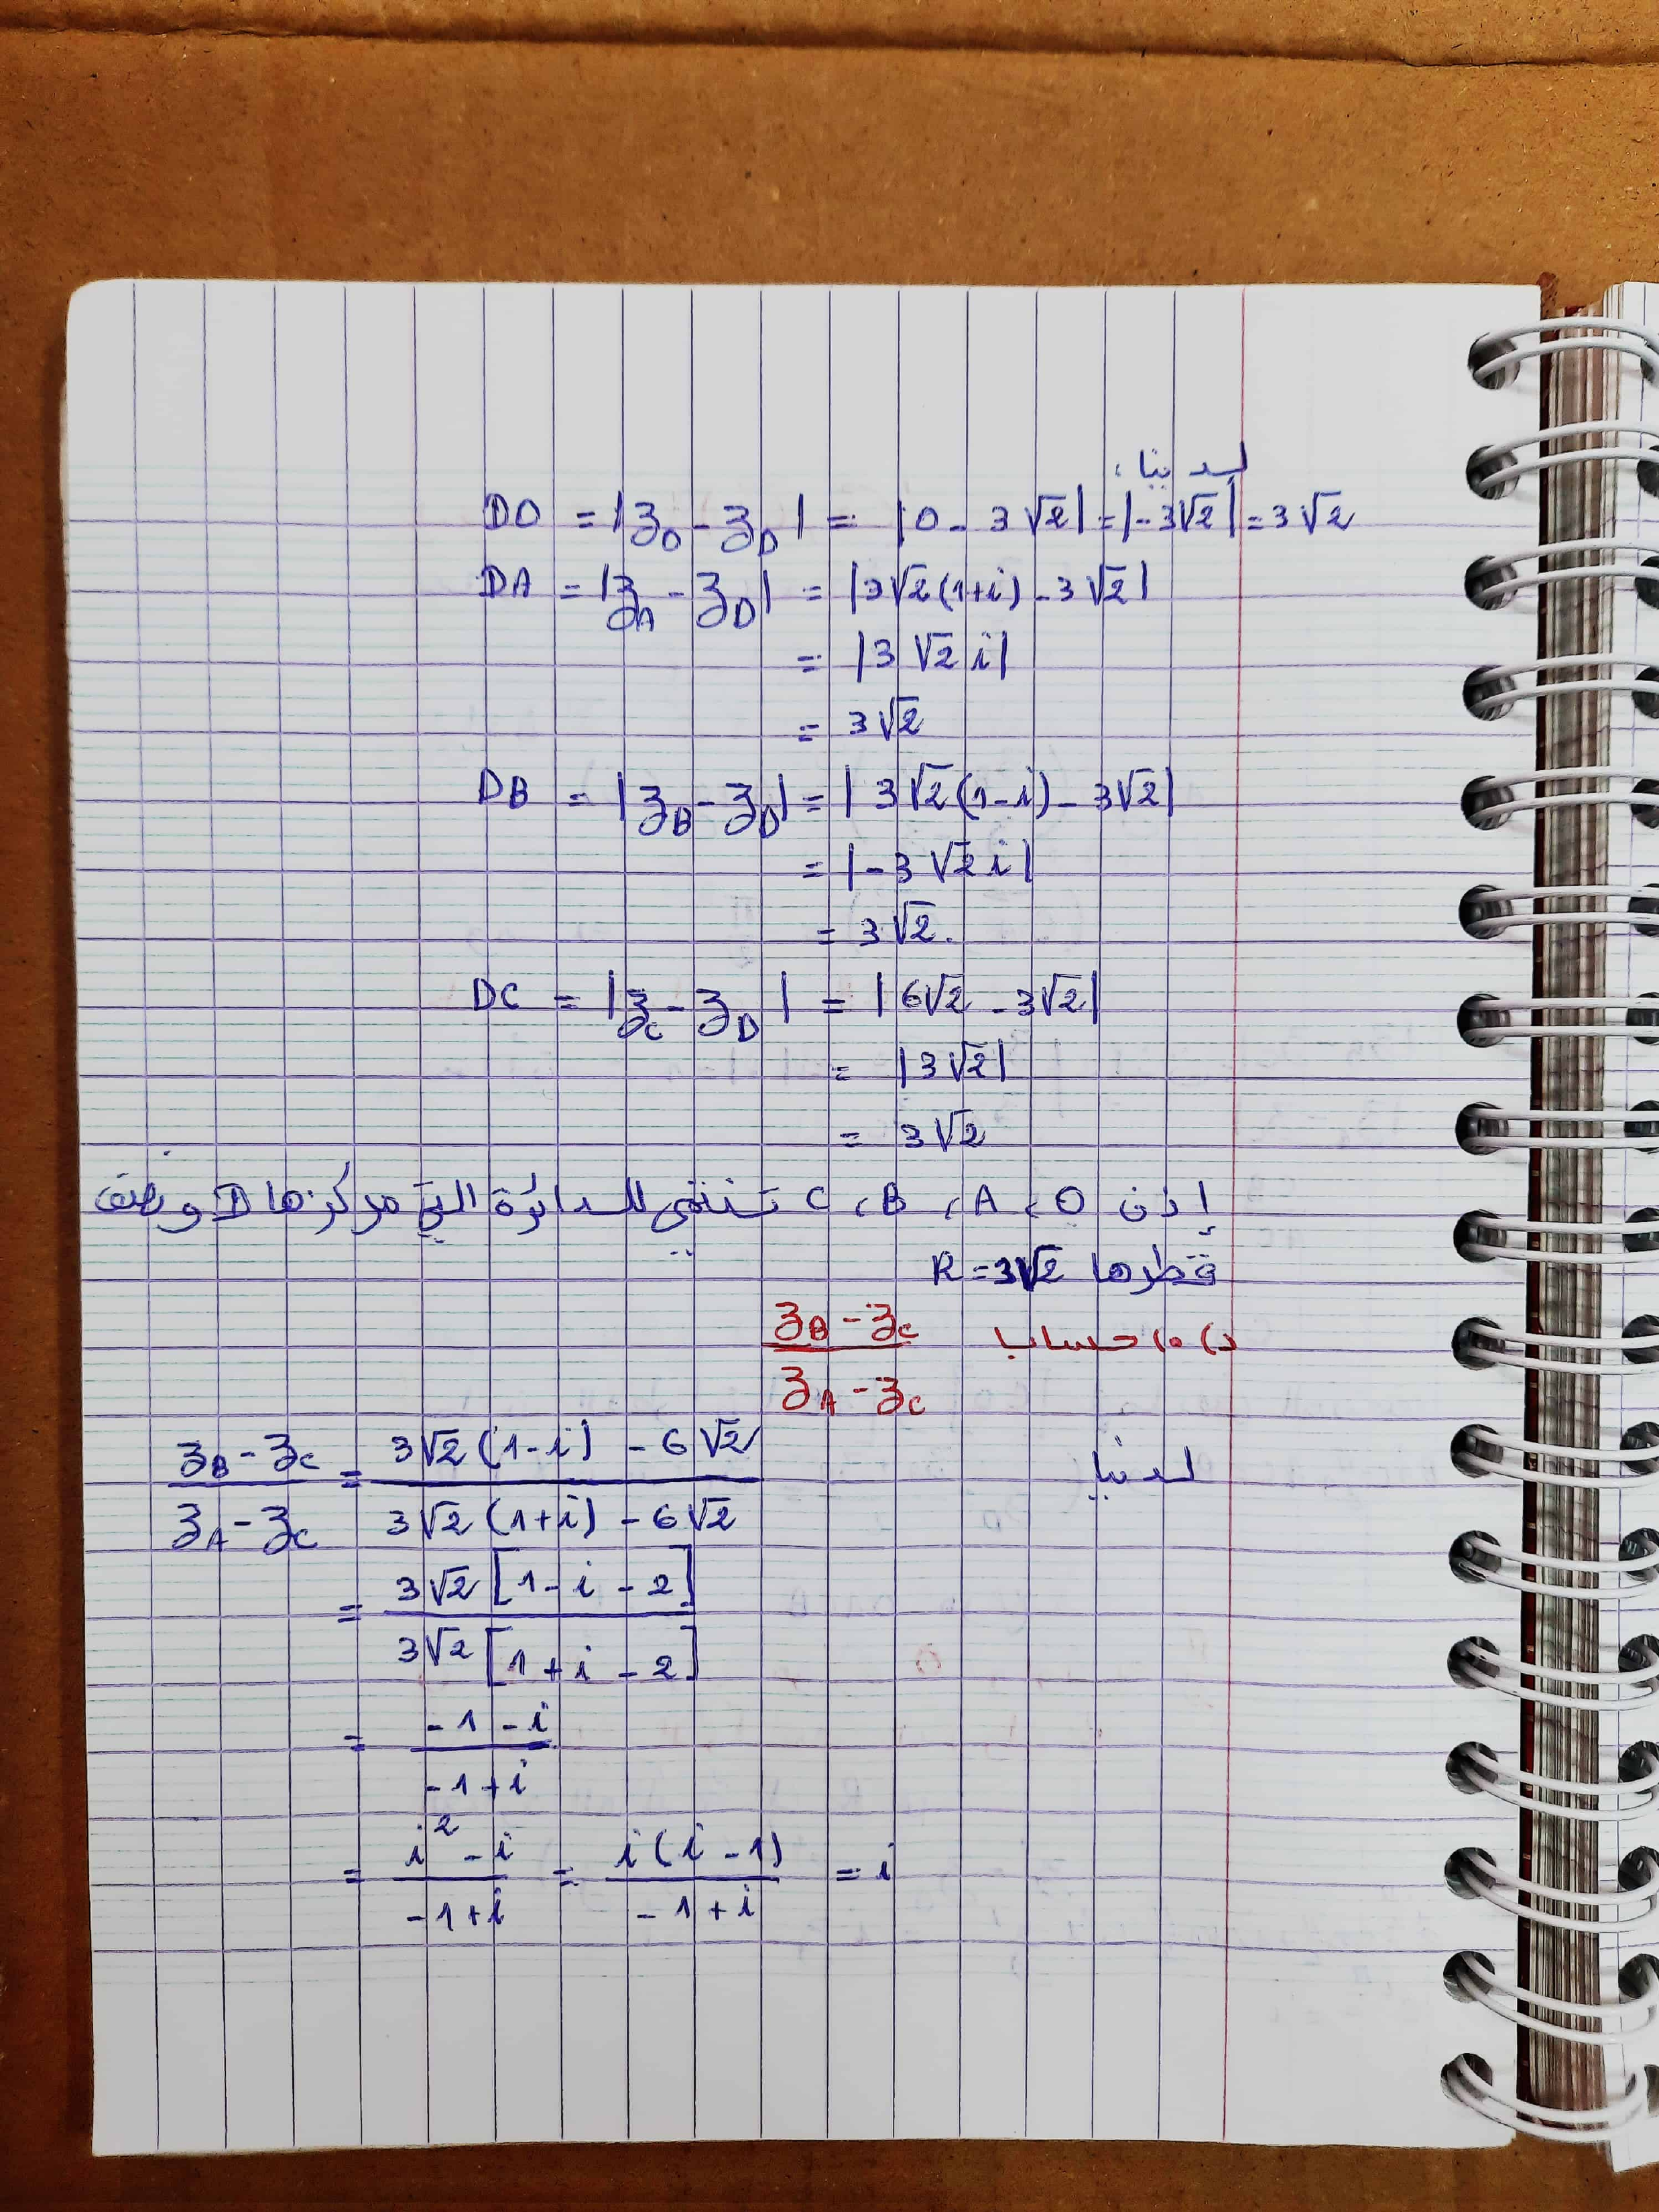 لدينا:
DO = |z_O - z_D| = |0 - 3√2| = |-3√2| = 3√2
DA = |z_A - z_D| = |3√2(1+i) - 3√2|
= |3√2 i|
= 3√2
DB = |z_B - z_D| = |3√2(1-i) - 3√2|
= |-3√2 i|
= 3√2.
DC = |z_C - z_D| = |6√2 - 3√2|
= |3√2|
= 3√2
إذن O، A، B، C تنتمي للدائرة التي مركزها D و نصف
قطرها R = 3√2
د) ه) حساب (z_B - z_C)/(z_A - z_C)
لدينا (z_B - z_C)/(z_A - z_C) = (3√2(1-i) - 6√2)/(3√2(1+i) - 6√2)
= (3√2[1-i-2])/(3√2[1+i-2])
= (-1-i)/(-1+i)
= (i²-i)/(-1+i) = (i(i-1))/(-1+i) = i